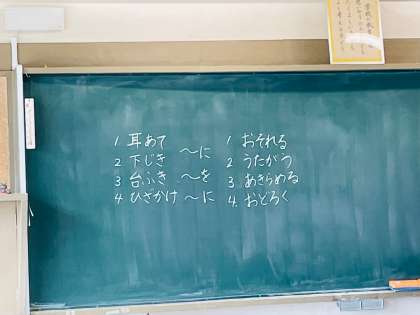 1 耳あて 1 おそれる
2 下じき ～に 2 うたがう
3 台ふき ～を 3. あきらめる
4 ひざかけ ～に 4. おどろく